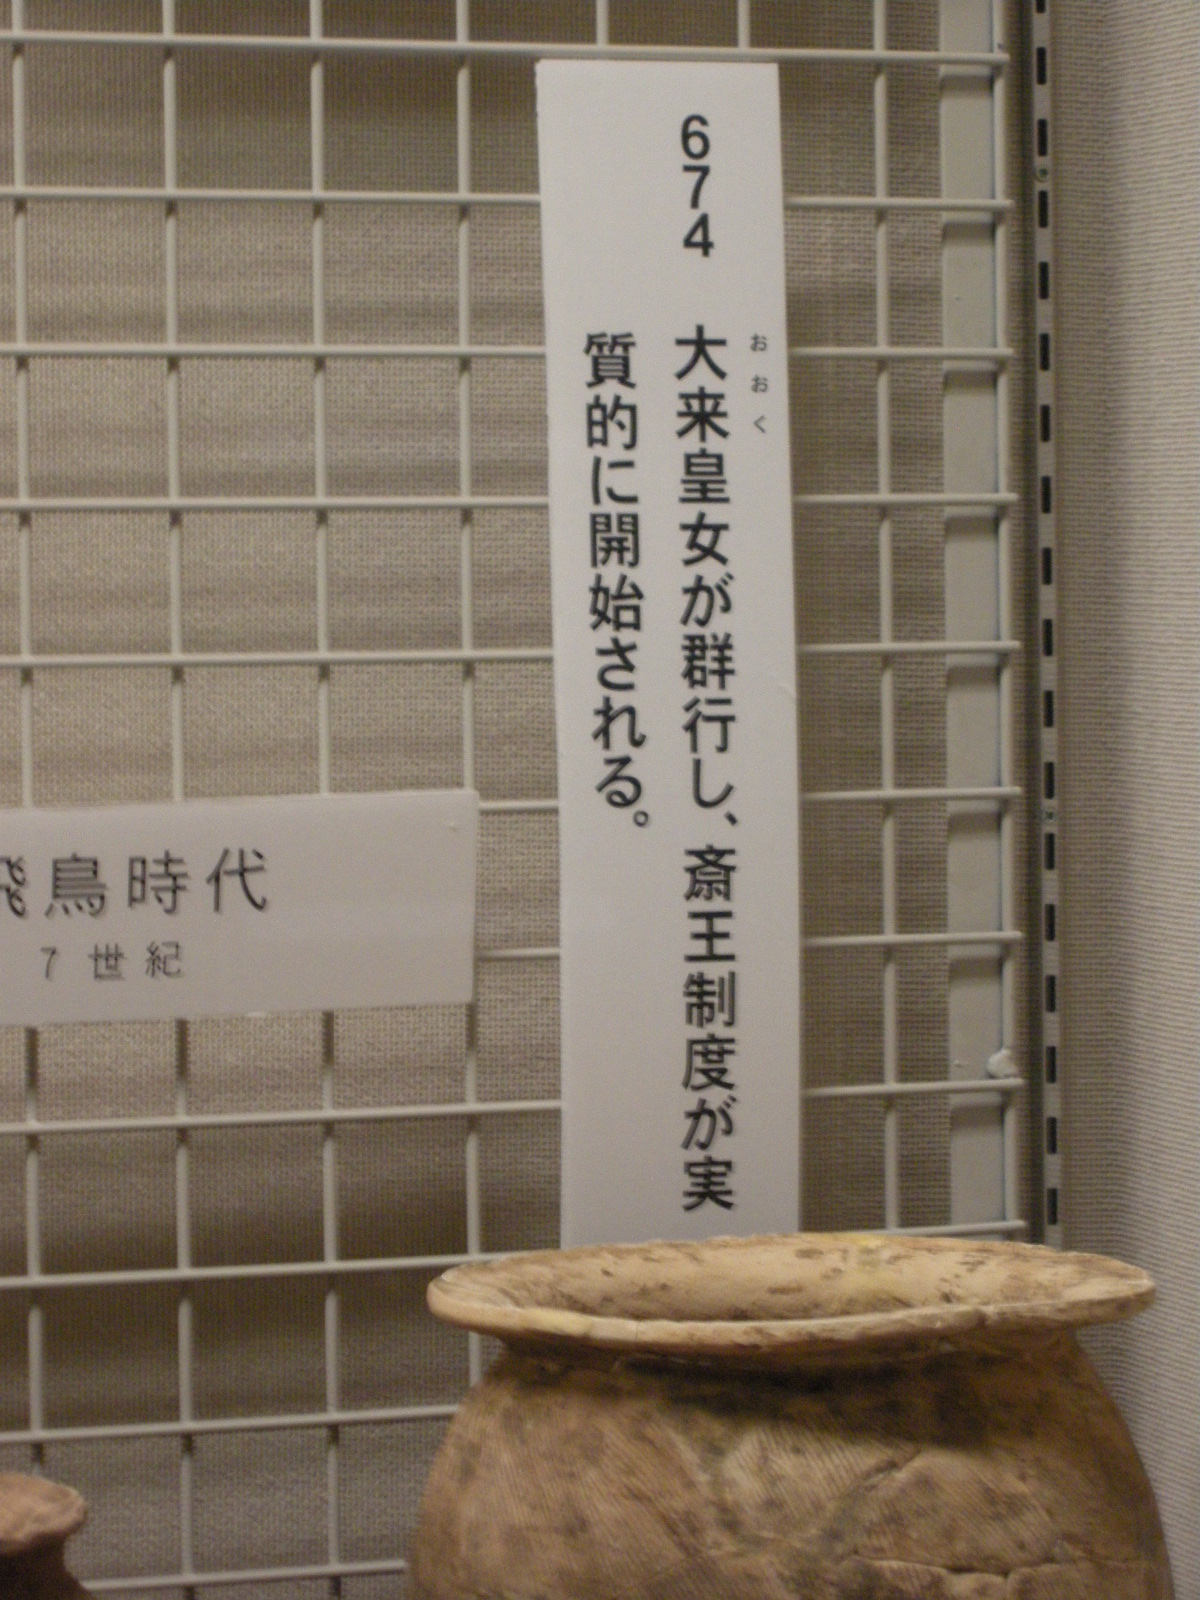 674 大来皇女が群行し、斎王制度が実
おおく
質的に開始される。
飛鳥時代
7世紀